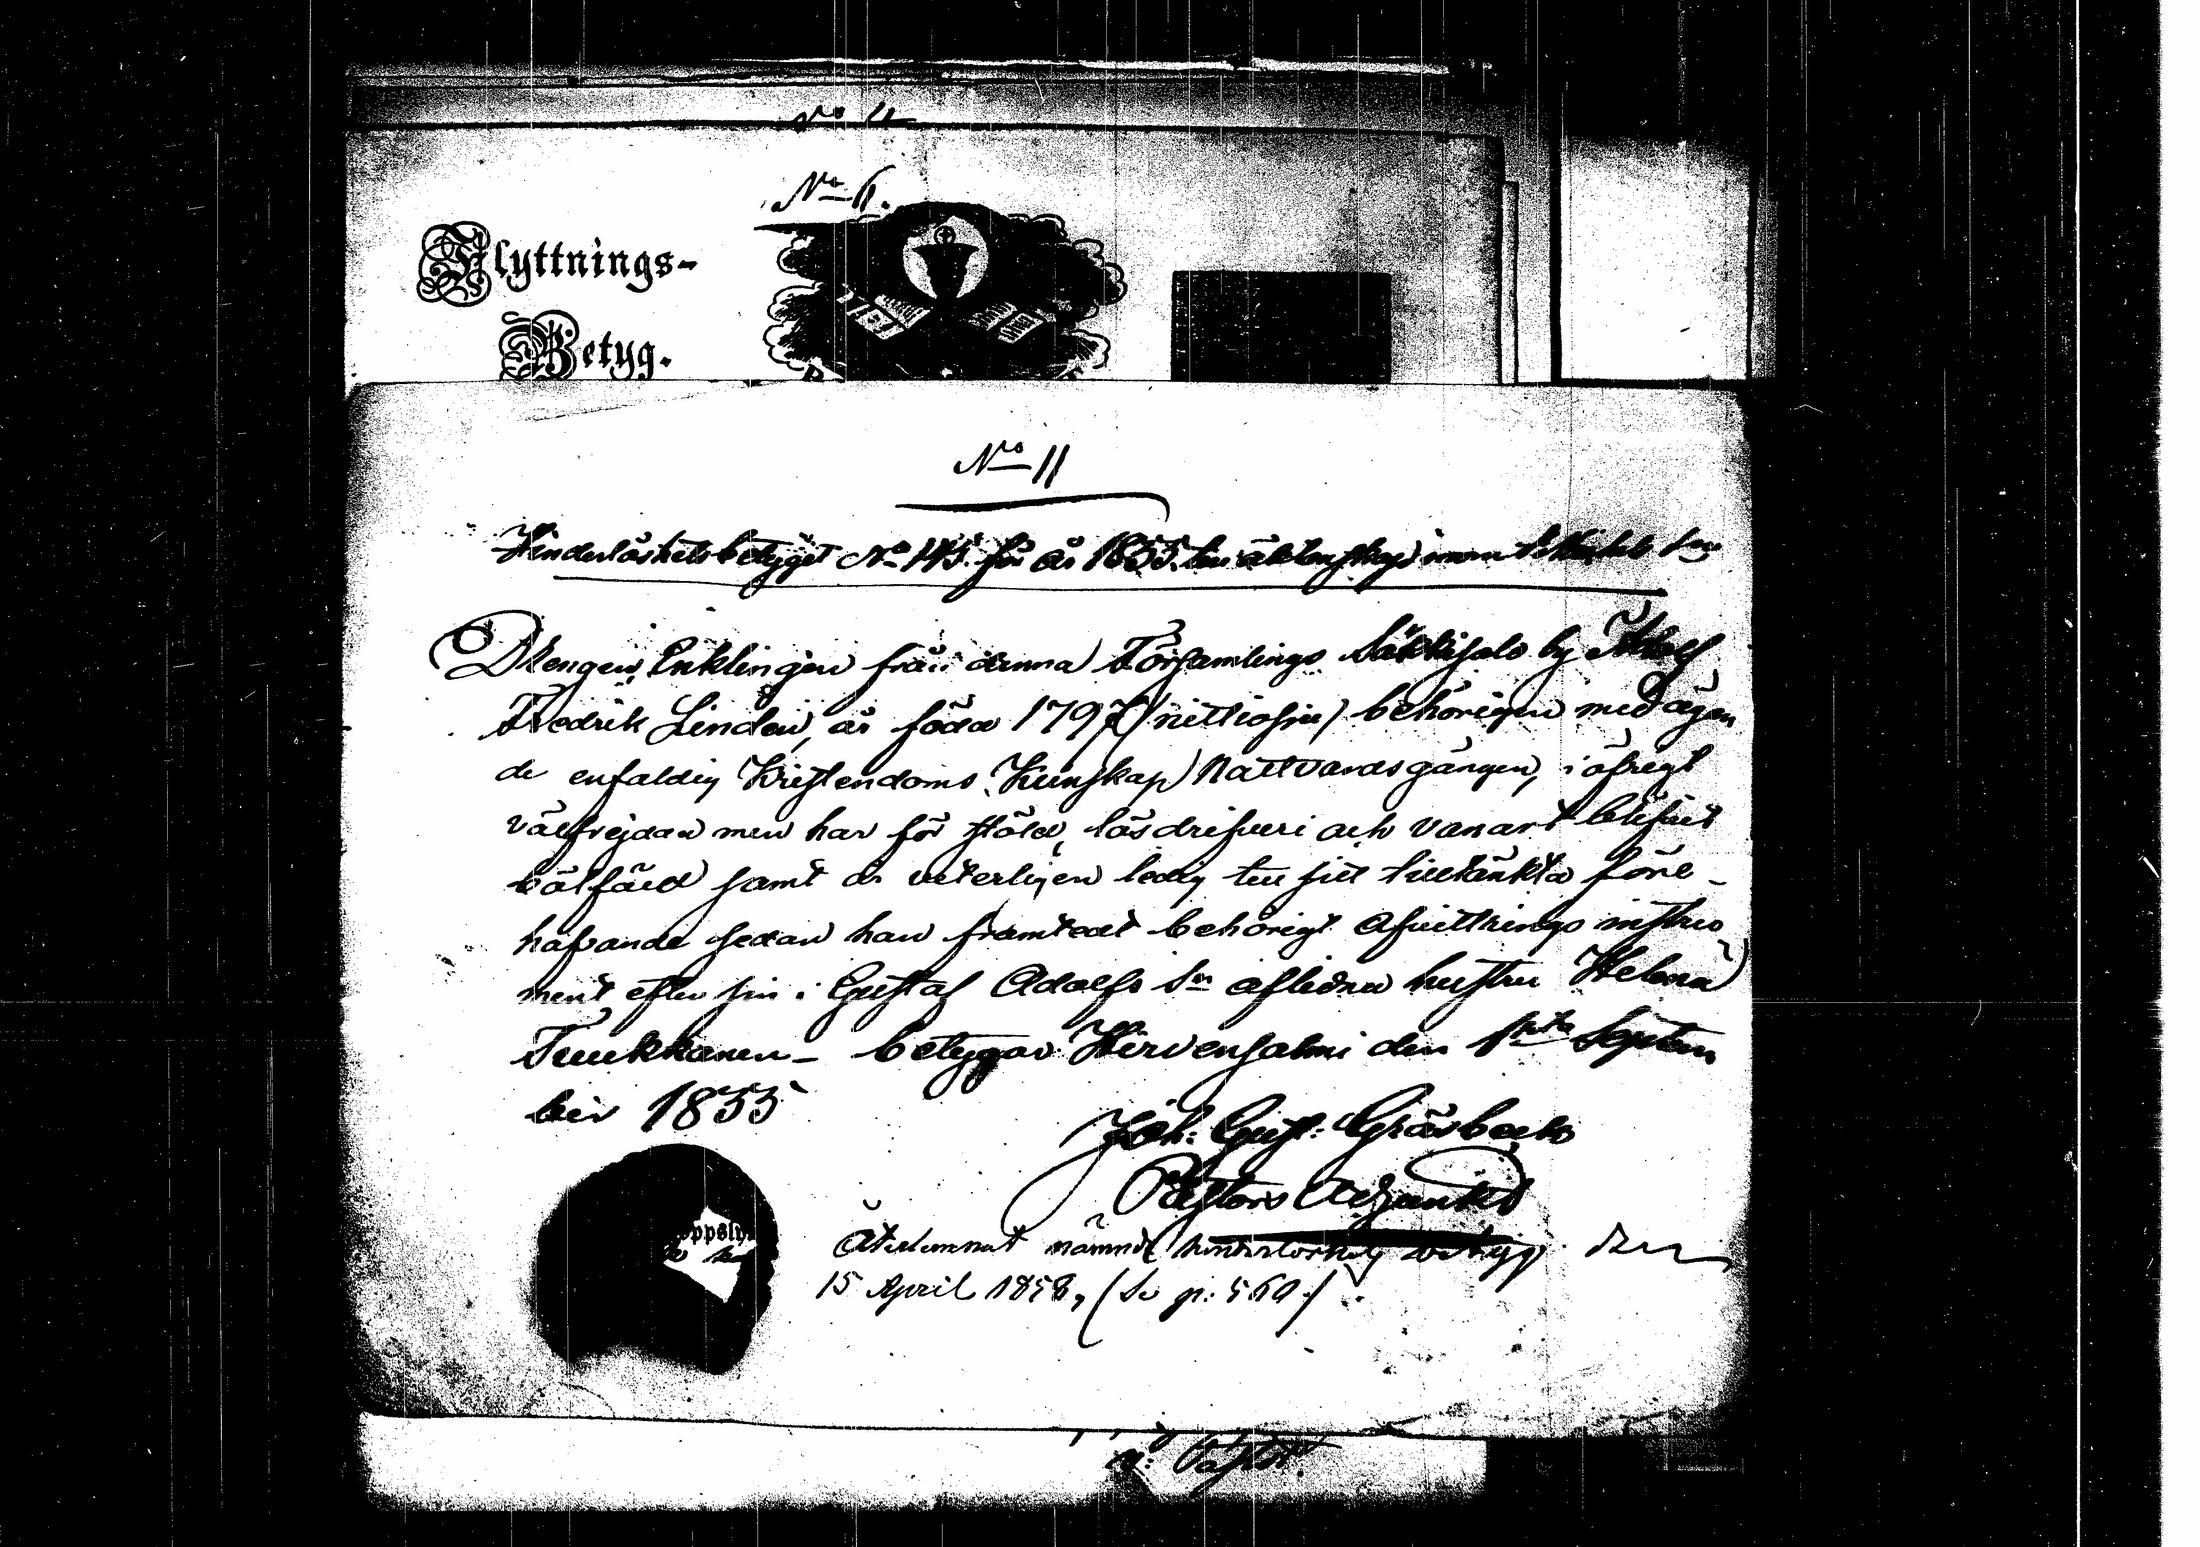 No 11
No 6.
Flyttnings-
Betyg.
No 11
Hinderlöshetsbetyget No 145. för år 1855. till äktenskap inom St Michels Sn
Drengen, Enklingen från denna Församlings Säkkisalo by Adolf
Fredrik Linden, är född 1797 (nittiosju) behörigen med ägan
de enfaldig Kristendoms Kunskap Nattvardsgången, i öfrigt
välfrejdad men har för stöld, lösdrifveri och vanart blifvit
fälld samt är veterligen ledig till sitt tilltänkta före-
hafvande sedan han framtedt behörigt afvittrings instru
ment efter sin i Gustaf Adolfs Sn aflidna hustru Helena
Tuukkanen - betygar Hirvensalmi den 1sta Septem
ber 1855
Joh: Gust: Gråsbeck
Pastors Adjunkt
ppsly
Återlemnat nämnde hinderlöshets betyg den
15 April 1858, (Se p: 560.)
V: Pastor.